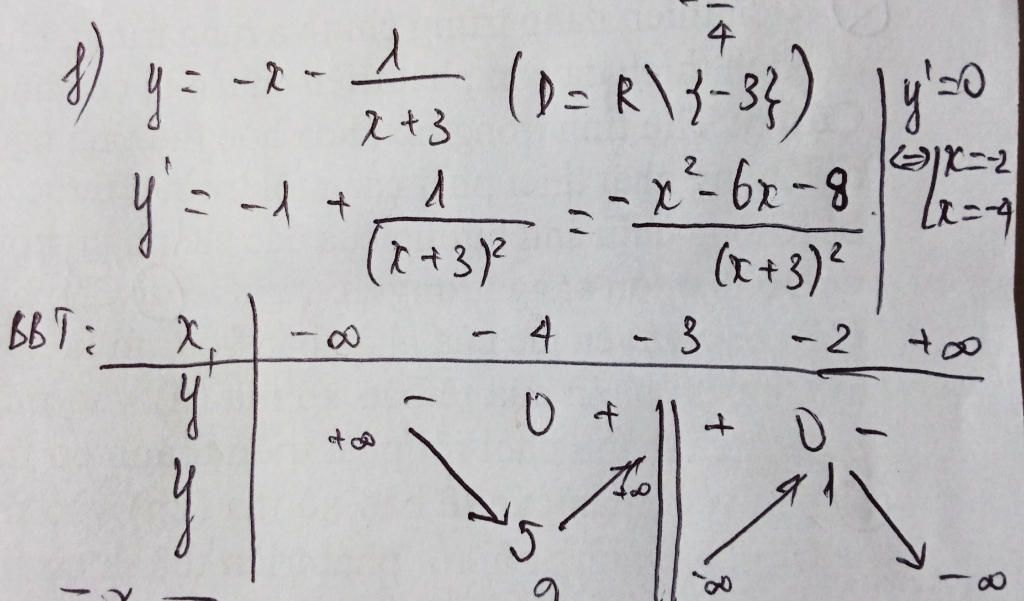 4
f) y = -x - 1/(x+3) (D = R \ {-3})
y' = -1 + 1/(x+3)² = (-x² - 6x - 8)/(x+3)²
y' = 0
<=> [x = -2
[x = -4
BBT: x | -∞ -4 -3 -2 +∞
y' | - 0 + || + 0 -
y | +∞ 5 +∞ || -∞ 1 -∞